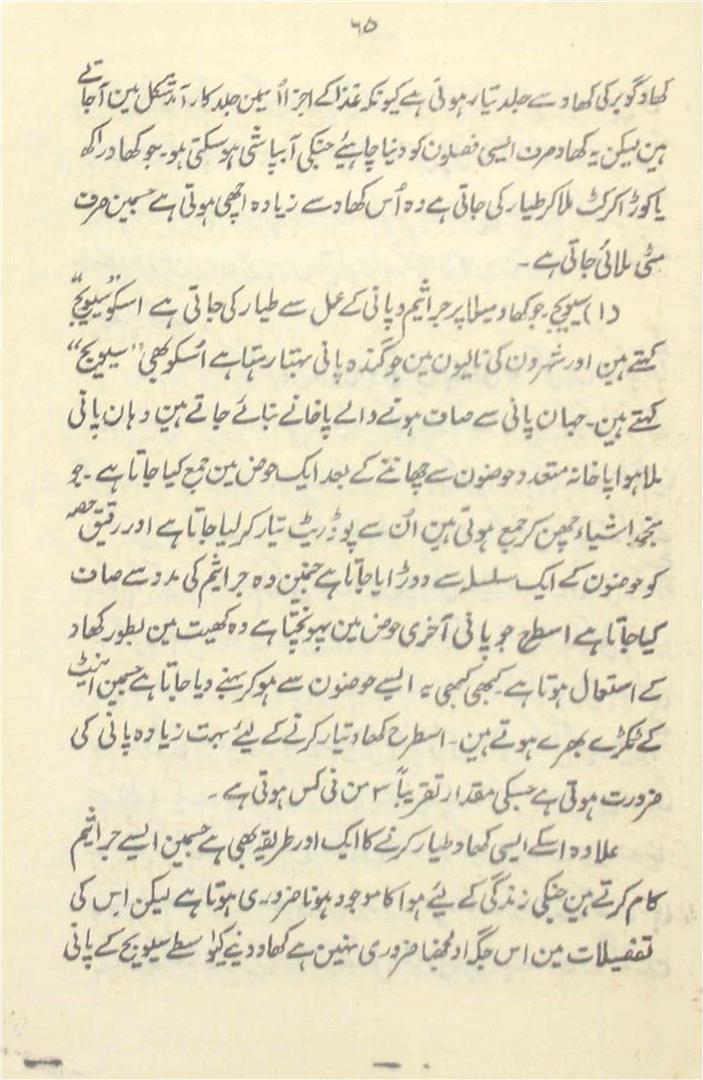 ٦٥
کھاد گوبر کی کھاد سے جلد تیار ہوتی ہے کیونکہ غذا کے اجزا اُسمین جلد کار آمد شکل مین آجاتے
ہین لیکن یہ کھاد صرف ایسی فصلون کو دینا چاہئے جنکی آبپاشی ہوسکتی ہو۔ جو کھاد راکھ
یا کوڑا کرکٹ ملا کر طیار کی جاتی ہے وہ اُس کھاد سے زیادہ اچھی ہوتی ہے جسمین صرف
مٹی ملائی جاتی ہے۔
(۱) سیویج۔ جو کھاد میلا پر جراثیم و پانی کے عمل سے طیار کی جاتی ہے اسکو "سیویج"
کہتے ہین اور شہرون کی نالیون مین جو گندہ پانی بہتا رہتا ہے اُسکو بھی "سیویج"
کہتے ہین۔ جہان پانی سے صاف ہونے والے پاخانے بنائے جاتے ہین وہان پانی
ملا ہوا پاخانہ متعدد حوضون سے چھاننے کے بعد ایک حوض مین جمع کیا جاتا ہے۔ جو
منجمد اشیاء چھن کر جمع ہوتی ہین اُن سے پوڈریٹ تیار کرلیا جاتا ہے اور رقیق حصہ
کو حوضون کے ایک سلسلہ سے دوڑایا جاتا ہے جنمین وہ جراثیم کی مدد سے صاف
کیا جاتا ہے اسطرح جو پانی آخری حوض مین پہونچتا ہے وہ کھیت مین بطور کھاد
کے استعمال ہوتا ہے۔ کبھی کبھی یہ ایسے حوضون سے ہوکر بہنے دیا جاتا ہے جسمین اینٹ
کے ٹکڑے بھرے ہوتے ہین۔ اسطرح کھاد تیار کرنے کے لیئے بہت زیادہ پانی کی
ضرورت ہوتی ہے جسکی مقدار تقریباً ۳ من فی کس ہوتی ہے۔
علاوہ اسکے ایسی کھاد طیار کرنے کا ایک اور طریقہ بھی ہے جسمین ایسے جراثیم
کام کرتے ہین جنکی زندگی کے لیئے ہوا کا موجود ہونا ضروری ہوتا ہے لیکن اس کی
تفصیلات مین اس جگہ اُلجھنا ضروری نہین ہے کھاد دینے کیواسطے سیویج کے پانی